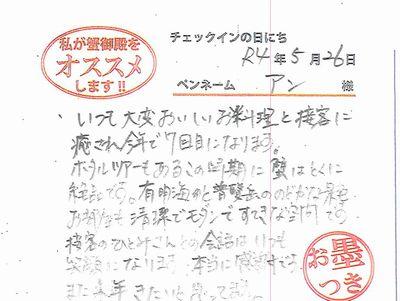 私が蟹御殿を
オススメ
します!!
チェックインの日にち
R4年5月26日
ペンネーム アン 様
いつも大変おいしいお料理と接客に
癒され今年で7回目になります。
ホタルツアーもあるこの時期に蟹はとくに
絶品です。有明海と普賢岳ののどかな景色
お部屋も清潔でモダンですてきな空間です
接客のひとみさんとの会話はいつも
笑顔になります。本当に感謝です。
また来年きたいと思って
お墨
つき